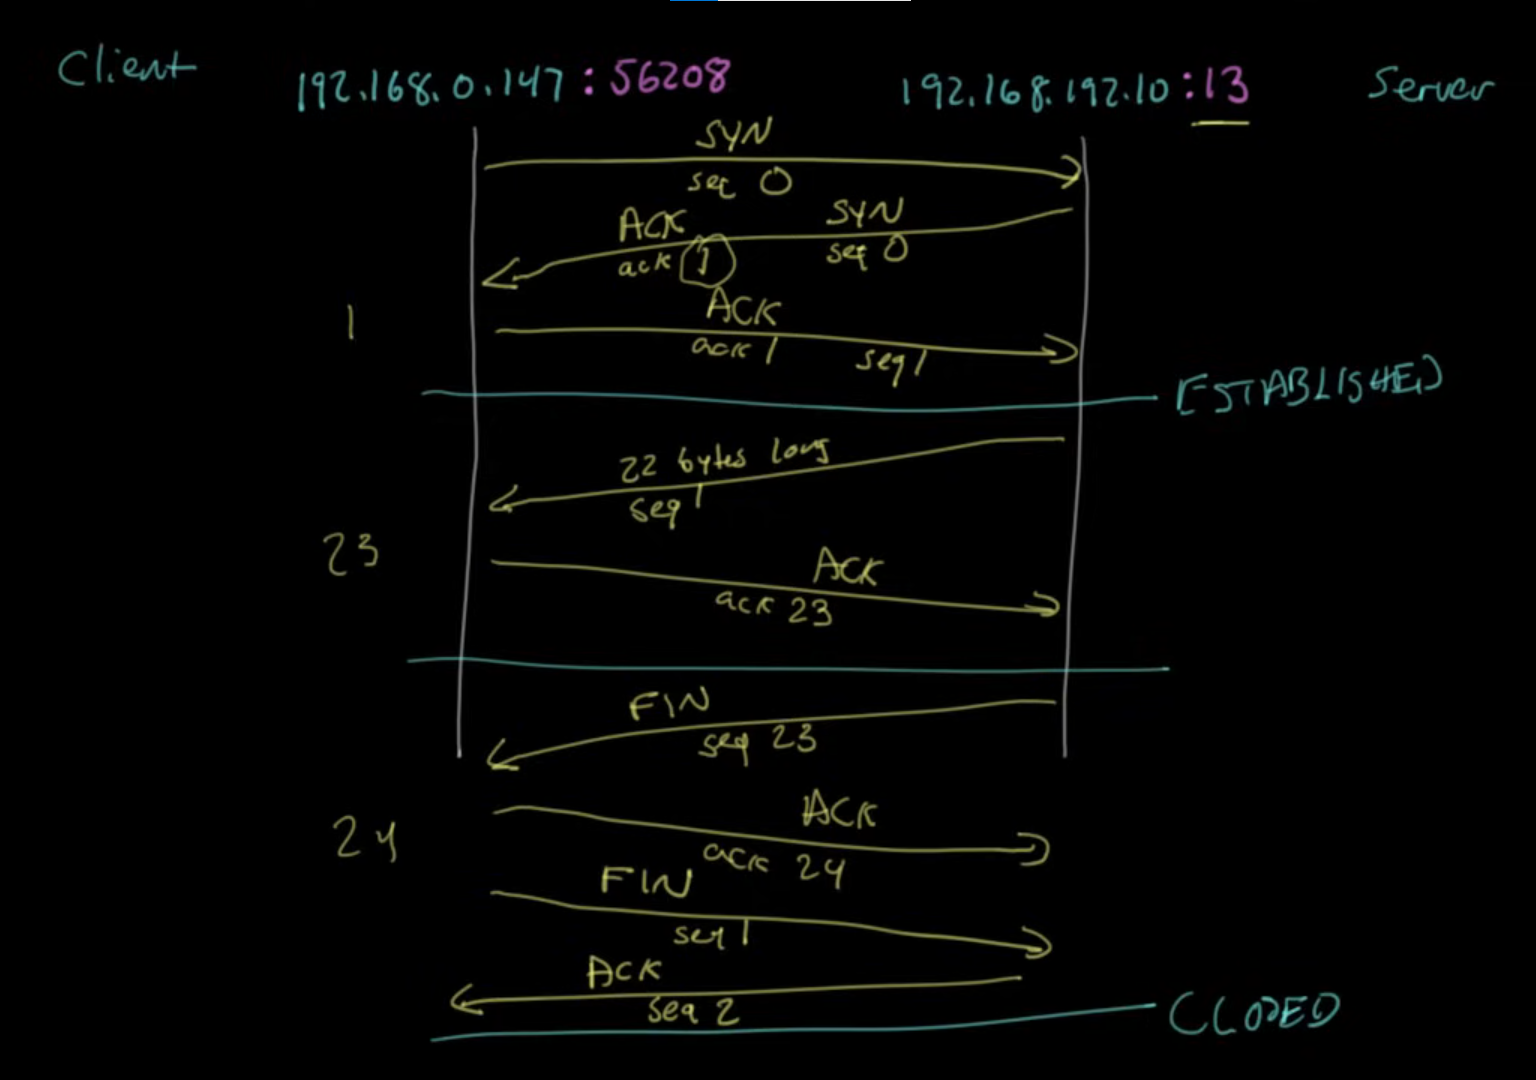 Client 192.168.0.147:56208 192.168.192.10:13 Server
SYN
seq 0
ACK SYN
ack 1 seq 0
1
ACK
ack 1 seq 1
ESTABLISHED
22 bytes long
seq 1
23
ACK
ack 23
FIN
seq 23
24
ACK
ack 24
FIN
seq 1
ACK
seq 2
CLOSED